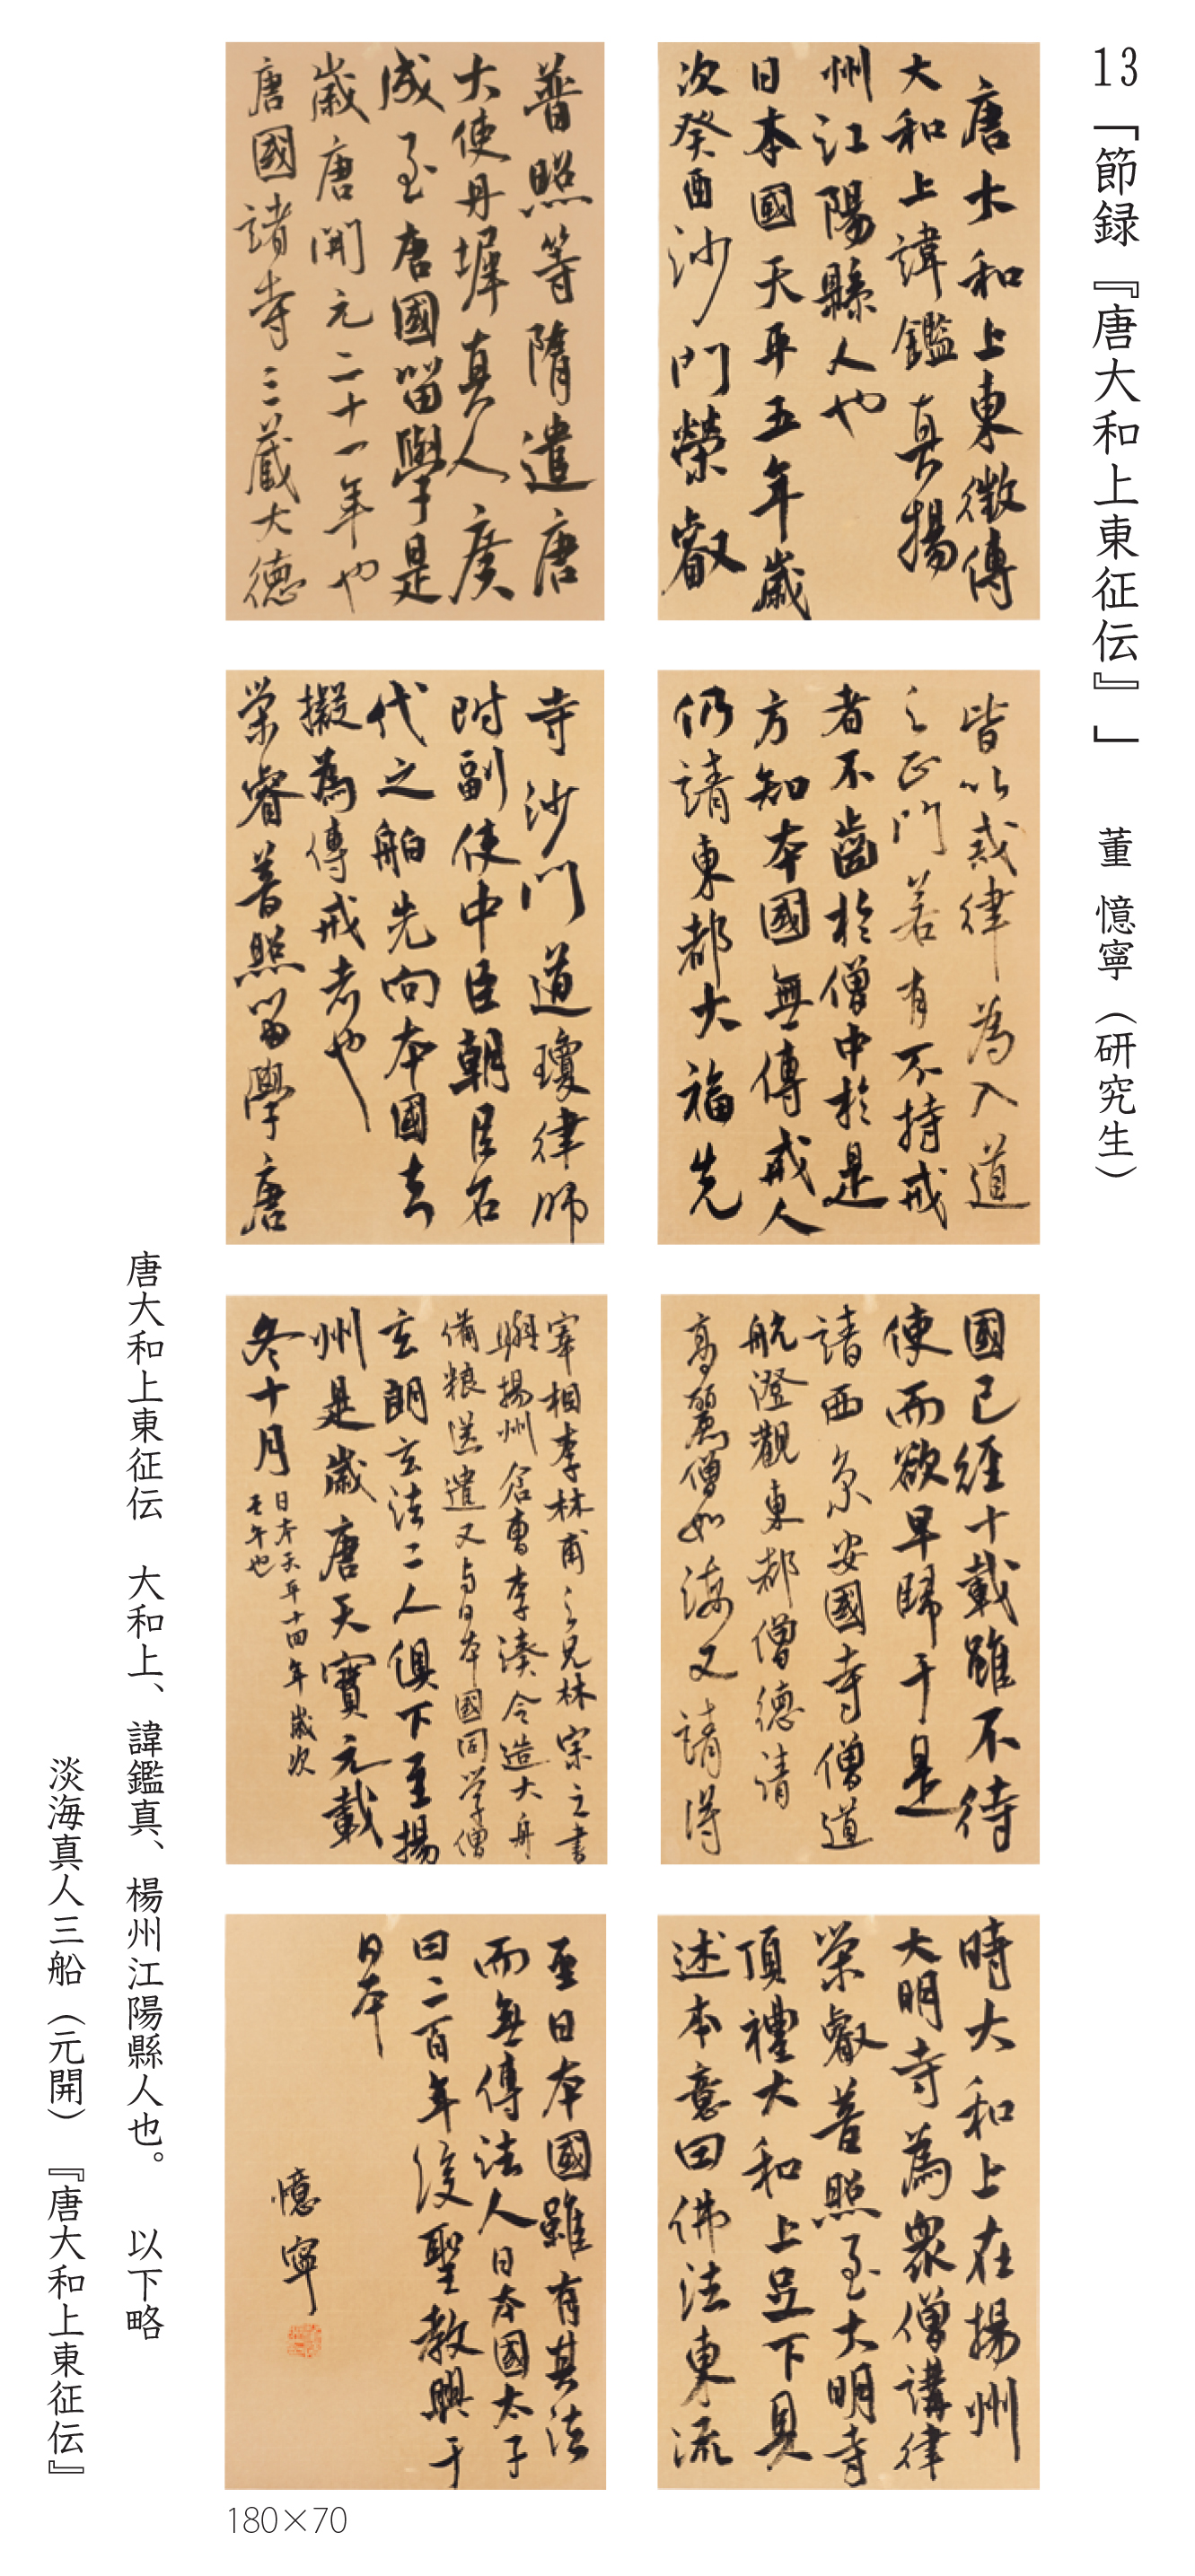 13「節録『唐大和上東征伝』」 董 憶寧（研究生）
唐大和上東徵傳
大和上諱鑑真揚
州江陽縣人也
日本國天平五年歲
次癸酉沙門榮叡
普照等隋遣唐
大使丹墀真人廣
成至唐國留學是
歲唐開元二十一年也
唐國諸寺三藏大德
皆以戒律為入道
之正門若有不持戒
者不齒於僧中於是
方知本國無傳戒人
仍請東都大福先
寺沙門道瓊律師
附副使中臣朝臣名
代之舶先向本國去
擬為傳戒者也
榮睿普照留學唐
國已經十載雖不待
使而欲早歸于是
請西京安國寺僧道
航澄觀東都僧德清
高麗僧如海又請得
宰相李林甫之兄林宗之書
與揚州倉曹李湊令造大舟
備粮送遣又与日本國同学僧
玄朗玄法二人俱下至揚
州是歲唐天寶元載
冬十月 日本天平十四年歲次
壬午也
時大和上在揚州
大明寺為眾僧講律
榮叡普照至大明寺
頂禮大和上足下具
述本意曰佛法東流
至日本國雖有其法
而無傳法人日本國太子
曰二百年後聖教興于
日本
憶寧
唐大和上東征伝 大和上、諱鑑真、楊州江陽縣人也。 以下略
淡海真人三船（元開）『唐大和上東征伝』
180×70